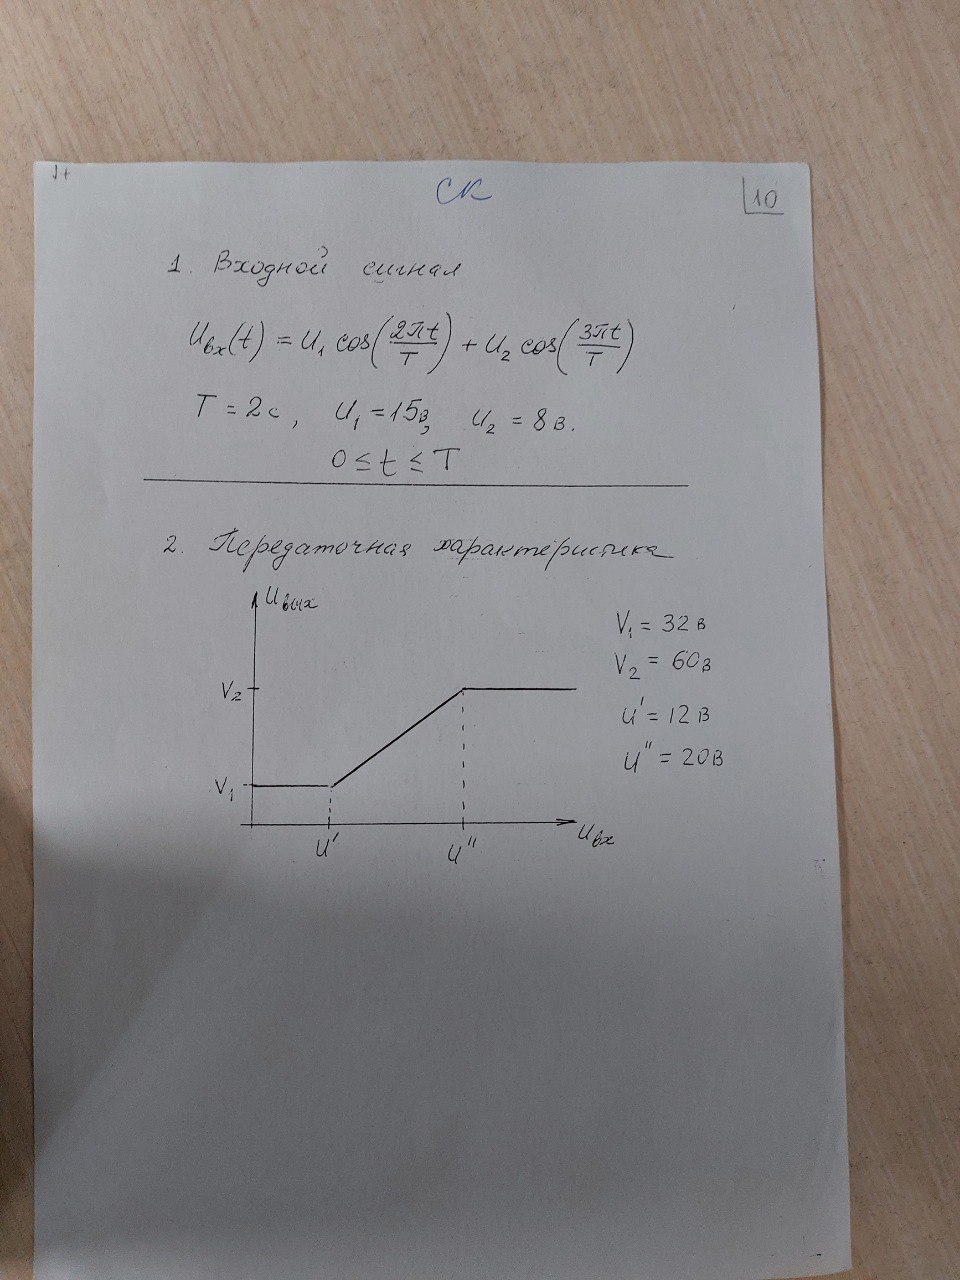 1+
СК
10
1. Входной сигнал
Uвх(t) = U₁ cos(2πt/T) + U₂ cos(3πt/T)
T = 2с, U₁ = 15в, U₂ = 8в.
0 ≤ t ≤ T
2. Передаточная характеристика
Uвых
V₁ = 32в
V₂ = 60в
V₂
U' = 12в
U'' = 20В
V₁
U' U'' Uвх